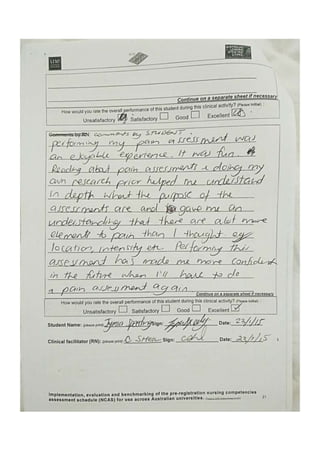 Continue on a separate sheet if necessary
How would you rate the overall performance of this student during this clinical activity? (Please initial)
Unsatisfactory Satisfactory Good Excellent
Comments by RN comments by STUDENT.
performing my pain assessment was
an enjoyable experience. It was fun.
Reading about pain assessments & doing my
own research prior helped me understand
in depth what the purpose of the
assessments are and gave me an
understanding that there are alot more
elements to pain than I thought eg
location, intensity etc. Performing this
assessment has made me more confident
in the future when I'll have to do
a pain assessment again
Continue on a separate sheet if necessary
How would you rate the overall performance of this student during this clinical activity? (Please initial)
Unsatisfactory Satisfactory Good Excellent
Student Name: (please print) Sign: Date: 23/1/15
Clinical facilitator (RN): (please print) Sign: Date: 23/1/15
Implementation, evaluation and benchmarking of the pre-registration nursing competencies
assessment schedule (NCAS) for use across Australian universities